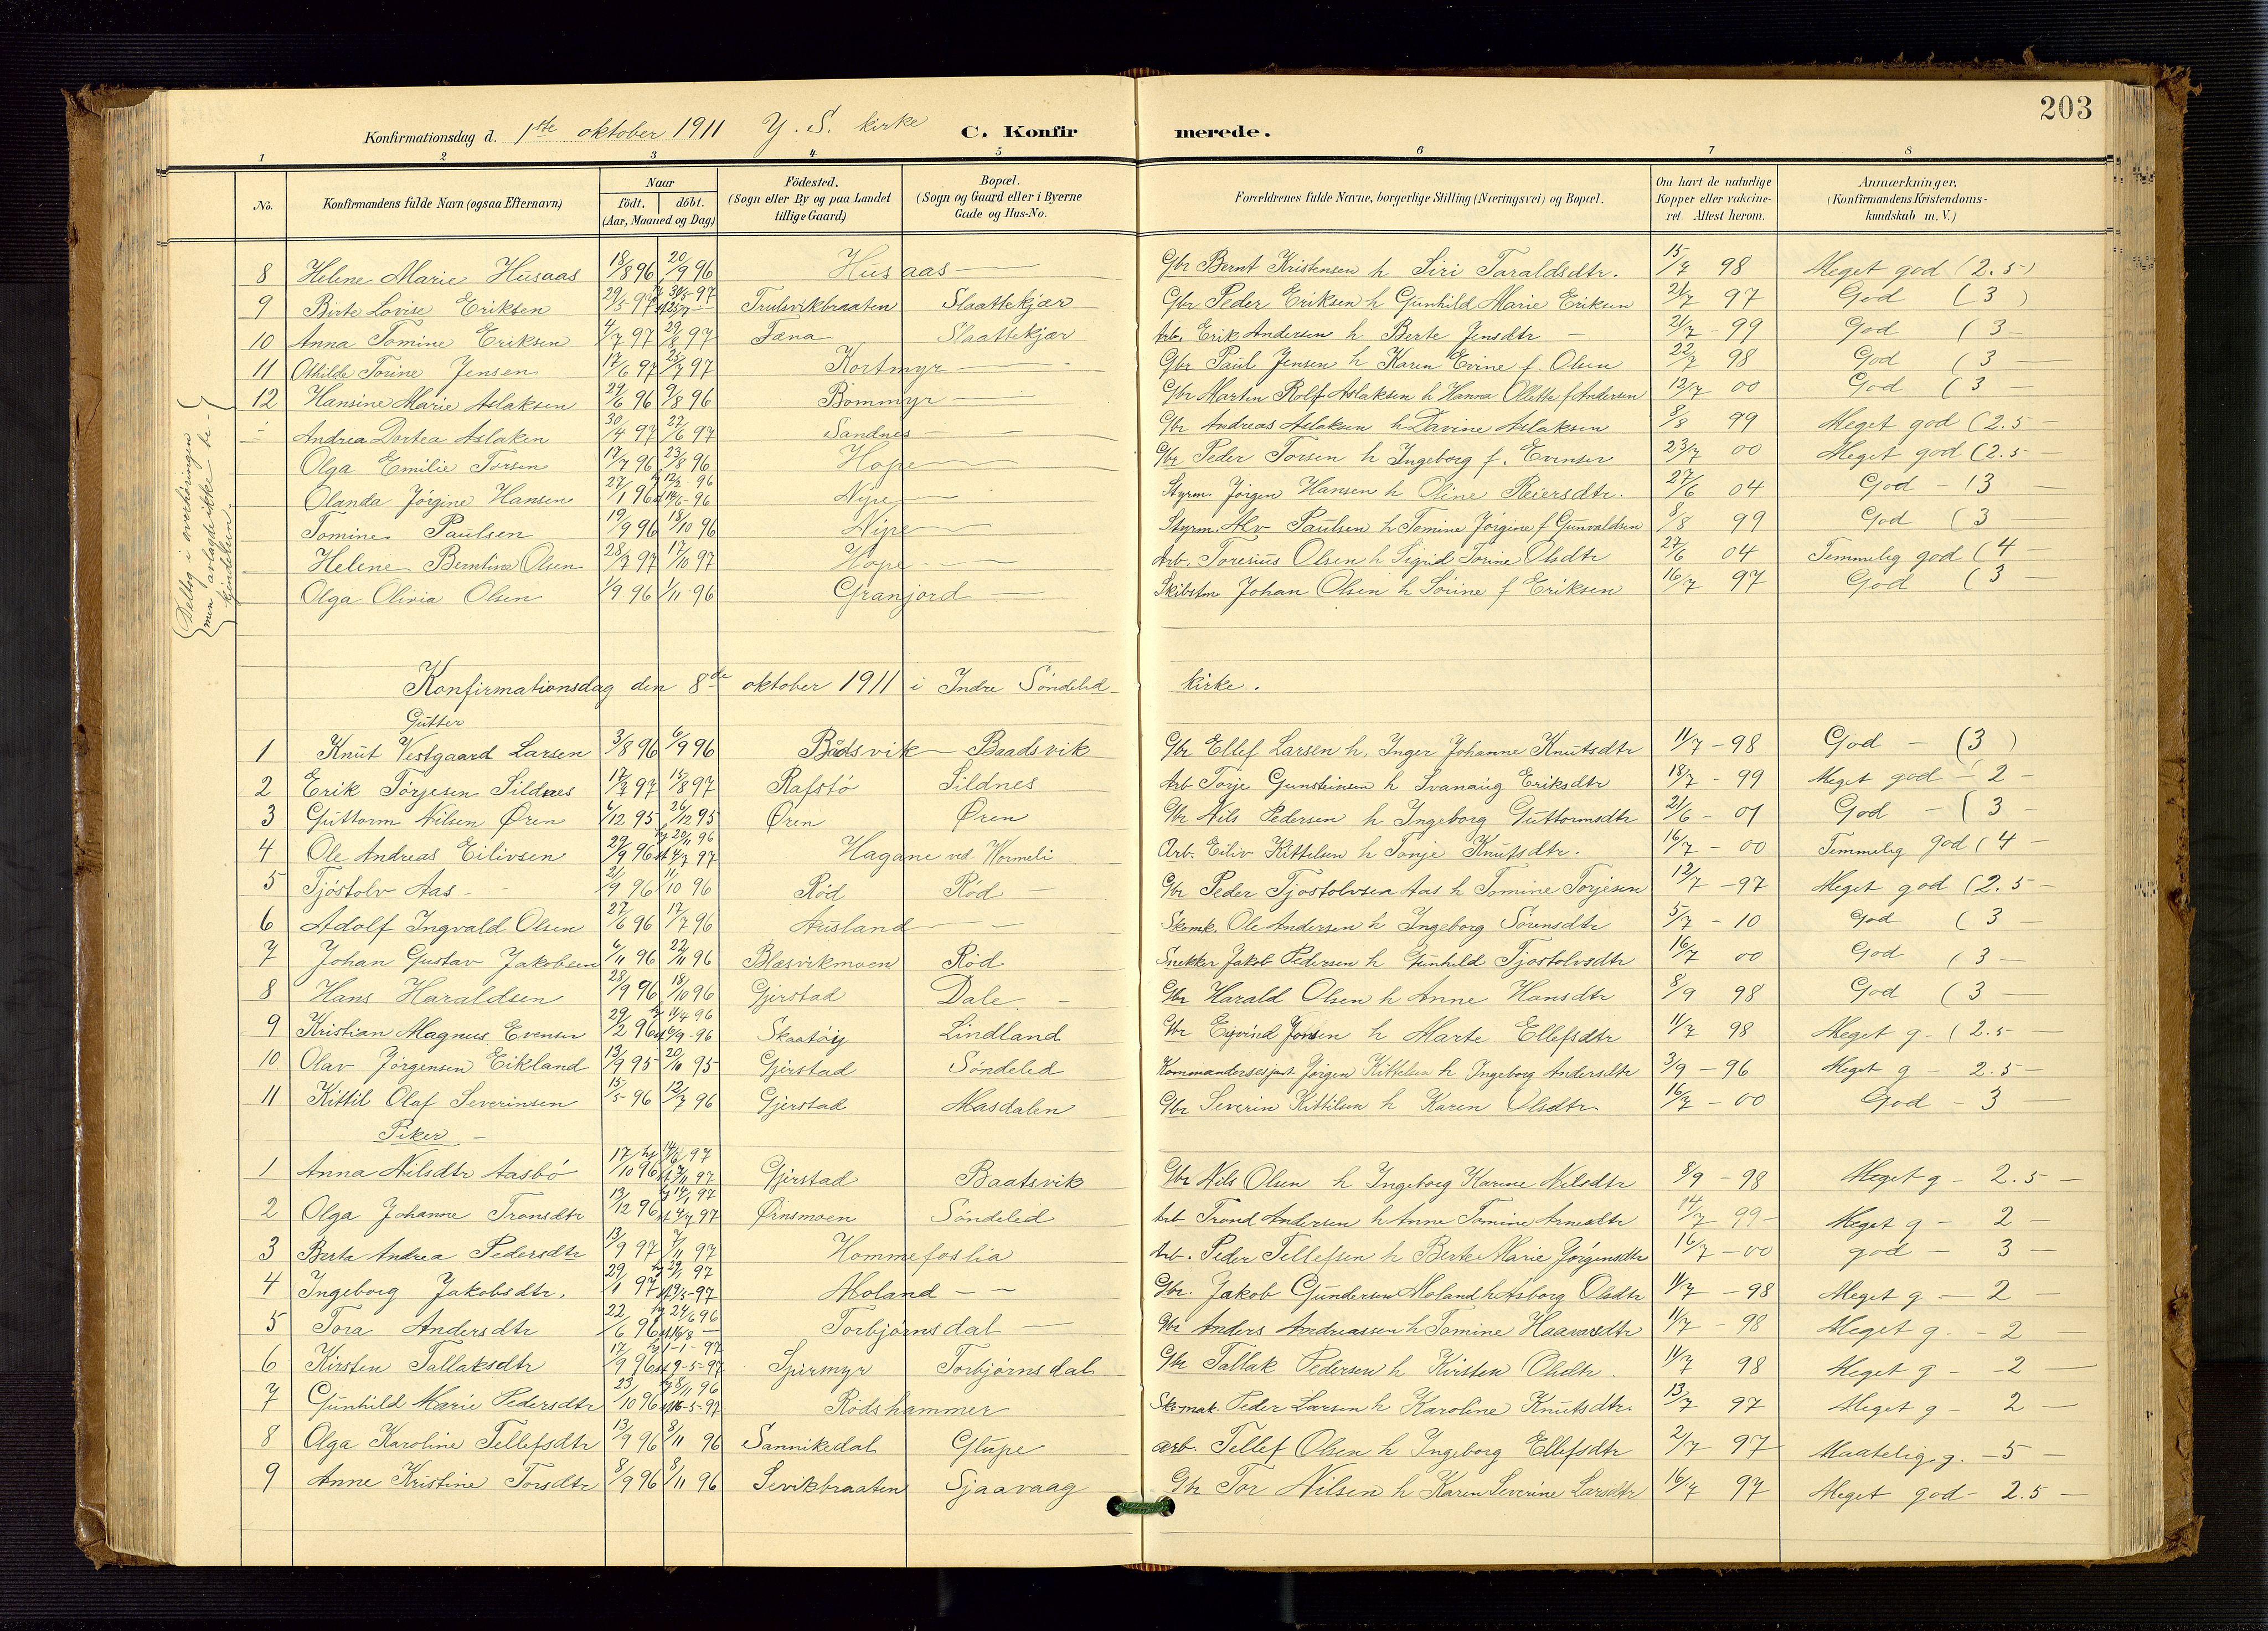 203
Konfirmationsdag d. 1ste oktober 1911 Y. S. kirke C. Konfirmerede.
1 2 3 4 5 6 7 8
No. Konfirmandens fulde Navn (ogsaa Efternavn) Naar födt. döbt. (Aar, Maaned og Dag) Födested. (Sogn eller By og paa Landet tillige Gaard) Bopæl. (Sogn og Gaard eller i Byerne Gade og Hus-No. Forældrenes fulde Navne, borgerlige Stilling (Næringsvei) og Bopæl. Om havt de naturlige Kopper eller vakcineret. Attest herom. Anmærkninger. (Konfirmandens Kristendomskundskab m. V.)
8 Helene Marie Husaas 18/8 96 20/9 96 Husaas — Gbr Bernt Kristensen h Siri Taraldsdtr. 15/7 98 Meget god (2.5)
9 Birte Lovise Eriksen 29/5 97 30/5 97 Trulsvikbraaten Slaattekjær Gbr Peder Eriksen h Gunhild Marie Eriksen 21/7 97 God (3)
10 Anna Tomine Eriksen 4/7 97 29/8 97 Fæna Slaattekjær Arb. Erik Andersen h Berte Jensdtr — 21/7 - 99 God (3 —
11 Othilde Torine Jensen 17/6 97 25/7 97 Kortmyr — Gbr Paul Jensen h Karen Evine f. Olsen 22/7 98 God (3 —
12 Hansine Marie Aslaksen 29/6 96 9/8 96 Bommyr — Gbr Martin Rolf Aslaksen h Hanna Ollette f Andersen 12/7 00 God (3 —
(Deltog i overhöringen men avlagde ikke bekjendelsen.
Andrea Dortea Aslaken 30/4 97 27/6 97 Sandnes — Gbr Andreas Aslaksen h Davine Aslaksen 8/8 99 Meget god (2.5 —
Olga Emilie Torsen 17/7 96 23/8 96 Hope — Gbr Peder Torsen h Ingeborg f. Evensen 23/7 00 Meget god (2.5 —
Olanda Jørgine Hansen 27/1 96 hj 12/2 - 96 st 14/6 - 96 Nipe — Styrm. Jørgen Hansen h Oline Reiersdtr. 27/6 04 God - (3 —
Tomine Paulsen 19/9 96 18/10 96 Nipe — Styrm. Alv Paulsen h Tomine Jørgine f Gunvaldsen 8/8 99 God (3
Helene Berntine Olsen 28/7 97 17/10 97 Hope — Arb. Toresius Olsen h Sigrid Torine Olsdtr 27/6 04 Temmelig god (4 —
Olga Olivia Olsen 1/9 96 1/11 96 Granjord — Skibstm Johan Olsen h Sörine f Eriksen 16/7 97 God (3 —
Konfirmationsdag den 8de oktober 1911 i Indre Söndeled kirke.
Gutter
1 Knut Vestgaard Larsen 3/8 96 6/9 96 Bådsvik — Baadsvik Gbr Ellef Larsen h. Inger Johanne Knutsdtr 11/7 - 98 God — (3)
2 Erik Torjesen Sildnes 17/7 97 15/8 97 Rafstö Sildnes Arb Torje Gunsteinsen h Svanaug Eriksdtr 18/7 - 99 Meget god - 2 -
3 Guttorm Nilsen Øren 6/12 95 26/12 95 Øren Øren Gbr Nils Pedersen h Ingeborg Guttormsdtr 21/6 - 01 God - (3 -
4 Ole Andreas Eilivsen 29/9 96 hj 20/11 96 st 4/7 97 Hagane ved Hormeli Arb. Eiliv Kittelsen h Tonje Knutsdtr. 16/7 - 00 Temmelig god (4 -
5 Tjöstolv Aas - 21/9 96 11/10 96 Röd Röd — Gbr Peder Tjostolvsen Aas h Tomine Torjesen 12/7 - 97 Meget god (2.5 -
6 Adolf Ingvald Olsen 27/6 96 17/7 96 Ausland — Skomk. Ole Andersen h Ingeborg Sörensdtr 5/7 - 10 God (3 —
7 Johan Gustav Jakobsen 6/11 96 22/11 96 Blæsvikmoen Röd Snekker Jakob Pedersen h Gunhild Tjostolvsdtr 16/7 00 God (3 —
8 Hans Haraldsen 28/9 96 18/10 96 Gjerstad Dale — Gbr Harald Olsen h Anne Hansdtr 8/9 98 God (3 —
9 Kristian Magnus Evensen 29/2 96 hj 11/4 96 st 6/9 - 96 Skaatöy Lindland Gbr Eivind Jonsen h Marte Ellefsdtr 11/7 98 Meget g - (2.5 —
10 Olav Jørgensen Eikland 13/9 95 20/10 95 Gjerstad Söndeled Kommandersersjant Jörgen Kittelsen h Ingeborg Andersdtr 3/9 - 96 Meget g - 2.5 —
11 Kittil Olaf Severinsen 15/5 - 96 12/7 96 Gjerstad Masdalen Gbr Severin Kittilsen h Karen Olsdtr. 16/7 - 00 God - 3 —
Piker —
1 Anna Nilsdtr Aasbö 17/10 96 hj 14/6 97 st 7/11 97 Gjerstad Baatsvik Gbr Nils Olsen h Ingeborg Karine Nilsdtr 8/9 - 98 Meget g - 2.5 —
2 Olga Johanne Tronsdtr 13/12 96 hj 14/1 97 st 4/7 97 Ørnsmoen Söndeled Arb Trond Andersen h Anne Tomine Arnesdtr 14/7 99 - Meget g - 2 —
3 Berte Andrea Pedersdtr 13/9 97 7/11 97 Hommefoslia Arb. Peder Tellefsen h Berte Marie Jörgensdtr 16/7 - 00 god - 3 —
4 Ingeborg Jakobsdtr. 29/1 97 hj 29/1 97 st 19/5 - 97 Moland — Gbr. Jakob Gundersen Moland h Asborg Olsdtr 11/7 - 98 Meget g — 2 —
5 Tora Andersdtr 22/6 96 hj 24/6 96 st 16/8 — Torbjörnsdal — Gbr Anders Andreassen h Tomine Haavorsdtr 11/7 - 98 Meget g. - 2 —
6 Kirsten Tallaksdtr 17/9 96 hj 1-1-97 st 9-5-97 Torbjörnsdal Gbr Tallak Pedersen h Kirsten Olsdtr. 11/7 98 Meget g - 2 —
7 Gunhild Marie Pedersdtr 23/10 96 hj 8/11 96 st 16-5-97 Rödshammer Skomak. Peder Larsen h Karoline Knutsdtr. 13/7 97 Meget g - 2 —
8 Olga Karoline Tellefsdtr 13/9 96 8/11 96 Sannikedal Glupe arb. Tellef Olsen h Ingeborg Ellefsdtr 2/7 97 Maatelig g. - 5 —
9 Anne Kristine Torsdtr 8/9 96 8/11 96 Sevikbraaten Sjaavaag Gbr Tor Nilsen h Karen Severine Larsdtr 16/7 97 Meget god - 2.5 —